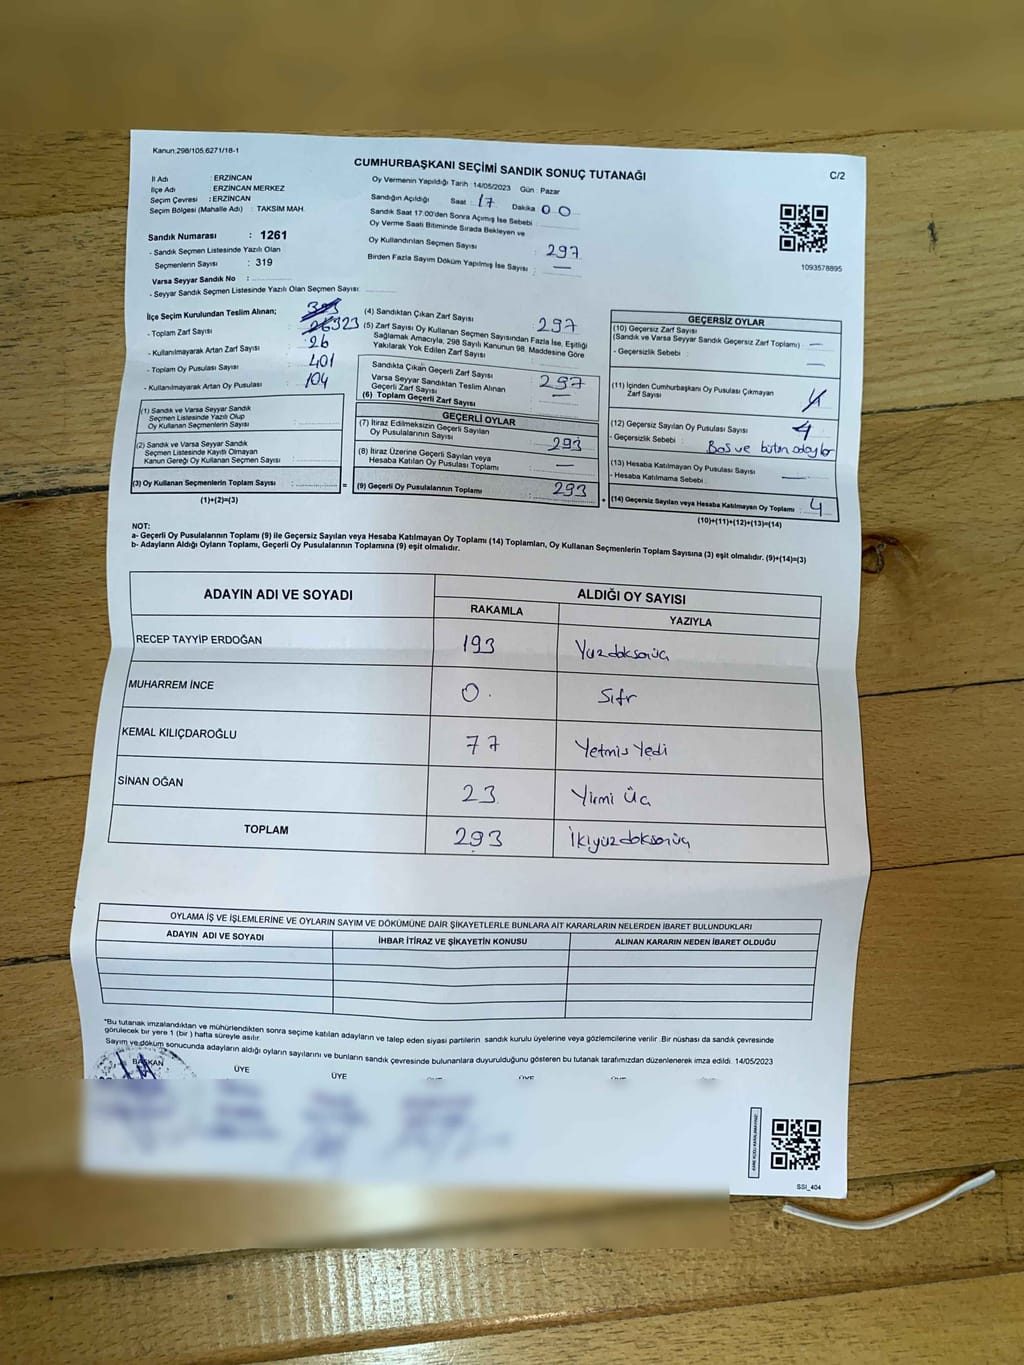 Kanun:298/105.6271/18-1
CUMHURBAŞKANI SEÇİMİ SANDIK SONUÇ TUTANAĞI
C/2
İl Adı : ERZİNCAN
İlçe Adı : ERZİNCAN MERKEZ
Seçim Çevresi : ERZİNCAN
Seçim Bölgesi (Mahalle Adı) : TAKSİM MAH.
Oy Vermenin Yapıldığı Tarih : 14/05/2023 Gün : Pazar
Sandığın Açıldığı Saat : 17 Dakika 00
Sandık Saat 17:00'den Sonra Açımış İse Sebebi :
Oy Verme Saati Bitiminde Sırada Bekleyen ve
Oy Kullandırılan Seçmen Sayısı : 297
Birden Fazla Sayım Döküm Yapılmış İse Sayısı : —
1093578895
Sandık Numarası : 1261
- Sandık Seçmen Listesinde Yazılı Olan
Seçmenlerin Sayısı : 319
Varsa Seyyar Sandık No :
- Seyyar Sandık Seçmen Listesinde Yazılı Olan Seçmen Sayısı:
İlçe Seçim Kurulundan Teslim Alınan;
- Toplam Zarf Sayısı : 323
- Kullanılmayarak Artan Zarf Sayısı : 26
- Toplam Oy Pusulası Sayısı : 401
- Kullanılmayarak Artan Oy Pusulası : 104
(1) Sandık ve Varsa Seyyar Sandık
Seçmen Listesinde Yazılı Olup
Oy Kullanan Seçmenlerin Sayısı :
(2) Sandık ve Varsa Seyyar Sandık
Seçmen Listesinde Kayıtlı Olmayan
Kanun Gereği Oy Kullanan Seçmen Sayısı :
(3) Oy Kullanan Seçmenlerin Toplam Sayısı : =
(1)+(2)=(3)
(4) Sandıktan Çıkan Zarf Sayısı : 297
(5) Zarf Sayısı Oy Kullanan Seçmen Sayısından Fazla İse, Eşitliği
Sağlamak Amacıyla, 298 Sayılı Kanunun 98. Maddesine Göre
Yakılarak Yok Edilen Zarf Sayısı :
Sandıkta Çıkan Geçerli Zarf Sayısı : 297
Varsa Seyyar Sandıktan Teslim Alınan
Geçerli Zarf Sayısı : —
(6) Toplam Geçerli Zarf Sayısı
GEÇERLİ OYLAR
(7) İtiraz Edilmeksizin Geçerli Sayılan
Oy Pusulalarının Sayısı : 293
(8) İtiraz Üzerine Geçerli Sayılan veya
Hesaba Katılan Oy Pusulası Toplamı : —
(9) Geçerli Oy Pusulalarının Toplamı : 293 +
GEÇERSİZ OYLAR
(10) Geçersiz Zarf Sayısı
(Sandık ve Varsa Seyyar Sandık Geçersiz Zarf Toplamı) : —
- Geçersizlik Sebebi : —
(11) İçinden Cumhurbaşkanı Oy Pusulası Çıkmayan
Zarf Sayısı :
(12) Geçersiz Sayılan Oy Pusulası Sayısı : 4
- Geçersizlik Sebebi : Boş ve bütün adaylar
(13) Hesaba Katılmayan Oy Pusulası Sayısı
- Hesaba Katılmama Sebebi : —
(14) Geçersiz Sayılan veya Hesaba Katılmayan Oy Toplamı : 4
(10)+(11)+(12)+(13)=(14)
NOT:
a- Geçerli Oy Pusulalarının Toplamı (9) ile Geçersiz Sayılan veya Hesaba Katılmayan Oy Toplamı (14) Toplamları, Oy Kullanan Seçmenlerin Toplam Sayısına (3) eşit olmalıdır. (9)+(14)=(3)
b- Adayların Aldığı Oyların Toplamı, Geçerli Oy Pusulalarının Toplamına (9) eşit olmalıdır.
ADAYIN ADI VE SOYADI
ALDIĞI OY SAYISI
RAKAMLA YAZIYLA
RECEP TAYYİP ERDOĞAN 193 Yüzdoksanüç
MUHARREM İNCE 0. Sıfır
KEMAL KILIÇDAROĞLU 77 Yetmiş Yedi
SİNAN OĞAN 23 Yirmi Üç
TOPLAM 293 İkiyüzdoksanüç
OYLAMA İŞ VE İŞLEMLERİNE VE OYLARIN SAYIM VE DÖKÜMÜNE DAİR ŞİKAYETLERLE BUNLARA AİT KARARLARIN NELERDEN İBARET BULUNDUKLARI
ADAYIN ADI VE SOYADI İHBAR İTİRAZ VE ŞİKAYETİN KONUSU ALINAN KARARIN NEDEN İBARET OLDUĞU
*Bu tutanak imzalandıktan ve mühürlendikten sonra seçime katılan adayların ve talep eden siyasi partilerin sandık kurulu üyelerine veya gözlemcilerine verilir. Bir nüshası da sandık çevresinde
görülecek bir yere 1 (bir) hafta süreyle asılır.
Sayım ve döküm sonucunda adayların aldığı oyların sayılarını ve bunların sandık çevresinde bulunanlara duyurulduğunu gösteren bu tutanak tarafımızdan düzenlenerek imza edildi. 14/05/2023
BAŞKAN ÜYE ÜYE
SSI_404